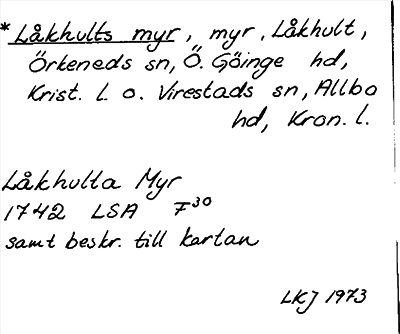 *Låkhults myr, myr, Låkhult,
Örkeneds sn, Ö. Göinge hd,
Krist. l. o. Virestads sn, Allbo
hd, Kron. l.
Låkhulta Myr
1742 LSA F30
samt beskr. till kartan
LKJ 1973